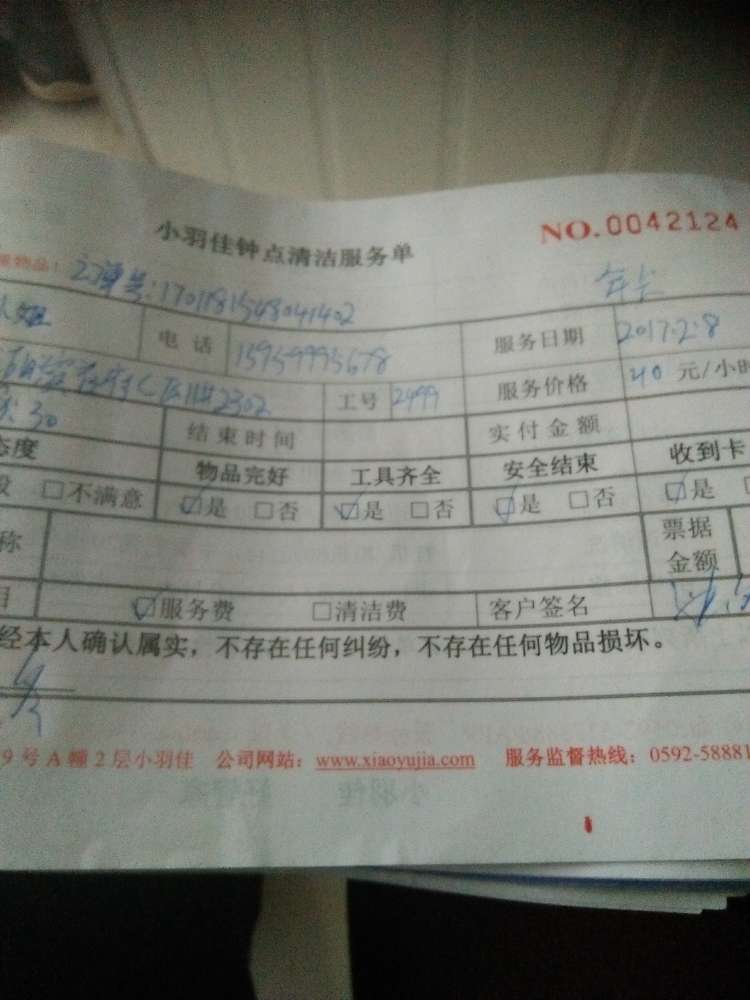 小羽佳钟点清洁服务单 NO.0042124
物品! 订单号:1701181548041402 年卡
姐 电话 15959995678 服务日期 2017.2.8
2302 工号 2499 服务价格 40 元/小时
30 结束时间 实付金额
态度 物品完好 工具齐全 安全结束 收到卡
□不满意 ☑是 □否 ☑是 □否 ☑是 □否 ☑是
称 票据金额
目 ☑服务费 □清洁费 客户签名
经本人确认属实，不存在任何纠纷，不存在任何物品损坏。
9号A幢2层小羽佳 公司网站：www.xiaoyujia.com 服务监督热线：0592-58881